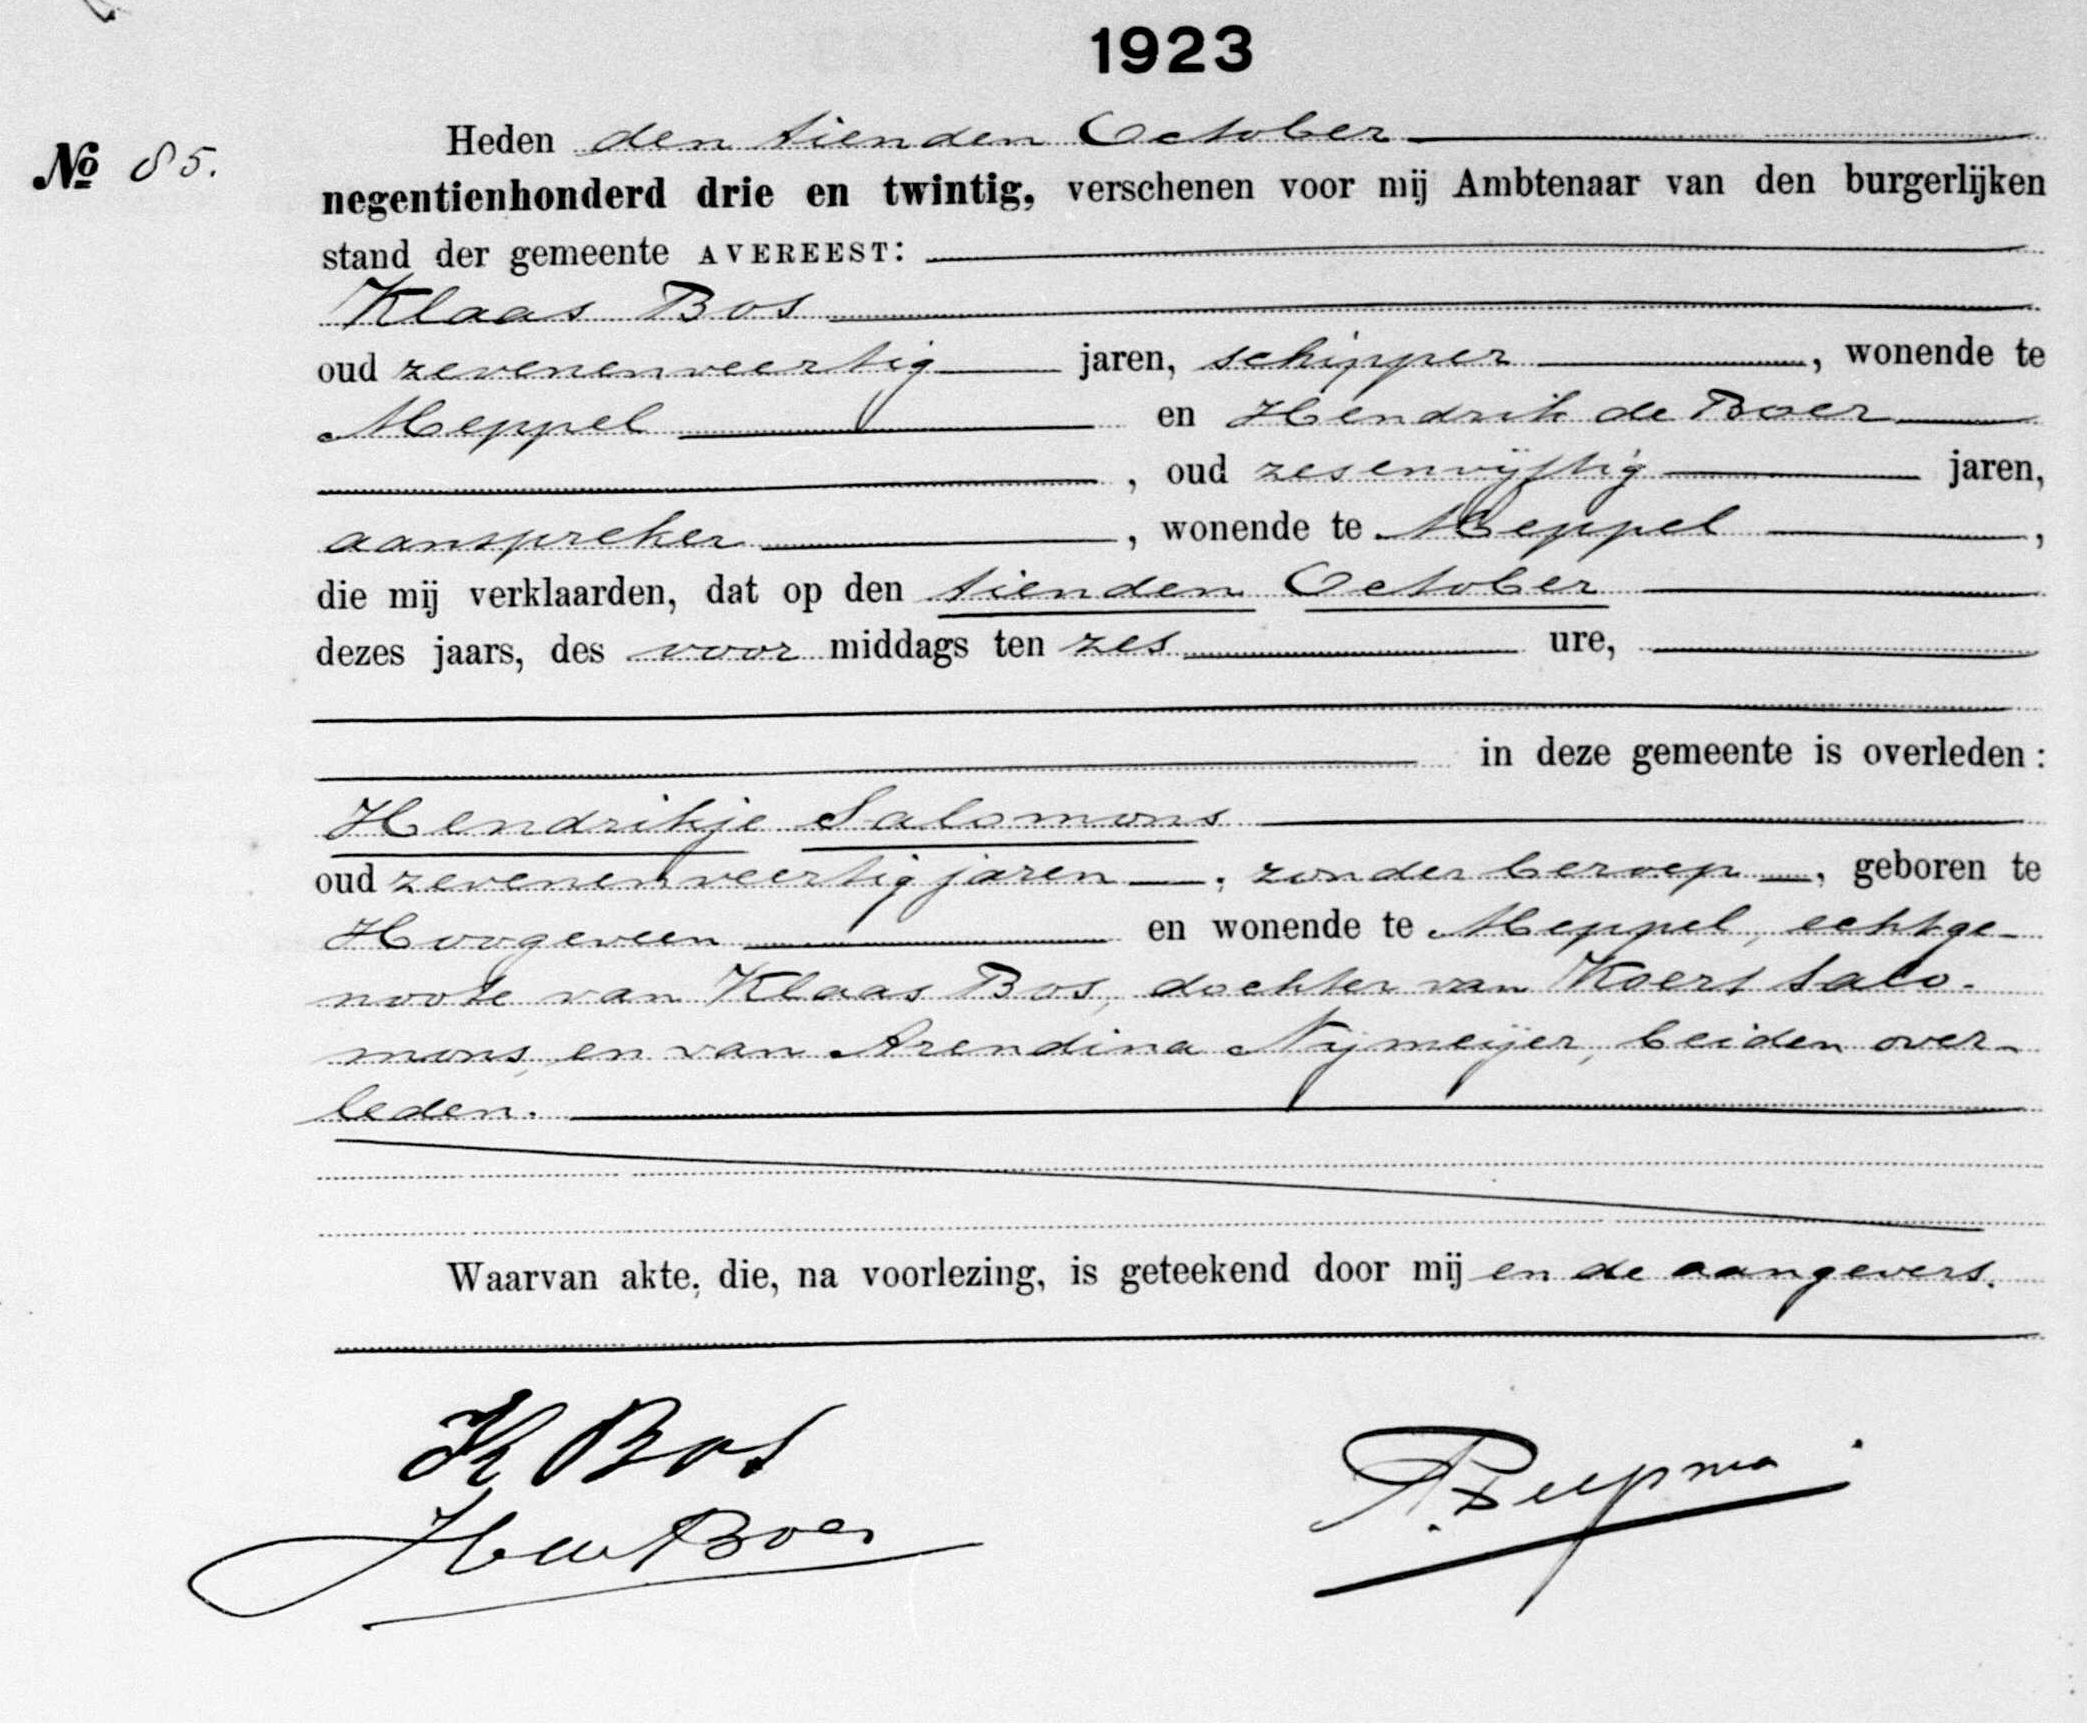 1923
Nº 85.
Heden den tienden October
negentienhonderd drie en twintig, verschenen voor mij Ambtenaar van den burgerlijken
stand der gemeente AVEREEST:
Klaas Bos
oud zevenenveertig jaren, schipper, wonende te
Meppel en Hendrik de Boer
, oud zesenvijftig jaren,
aanspreker, wonende te Meppel,
die mij verklaarden, dat op den tienden October
dezes jaars, des voor middags ten zes ure,
in deze gemeente is overleden:
Hendrikje Salomons
oud zevenenveertig jaren, zonder beroep, geboren te
Hoogeveen en wonende te Meppel, echtge-
noote van Klaas Bos, dochter van Koert Salo-
mons, en van Arendina Nijmeijer, beiden over-
leden.
Waarvan akte, die, na voorlezing, is geteekend door mij en de aangevers.
K Bos
H de Boer